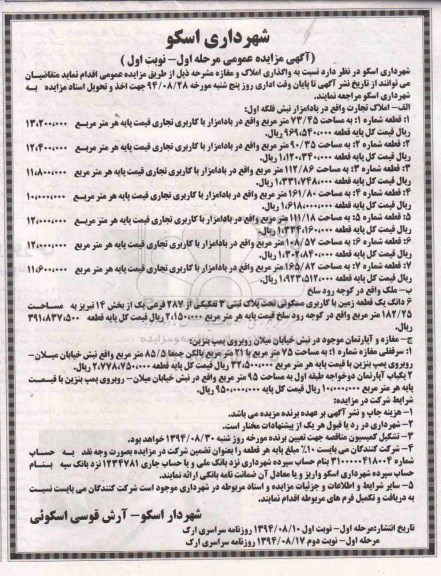 شهرداری اسکو
(آگهی مزایده عمومی مرحله اول- نوبت اول )
شهرداری اسکو در نظر دارد نسبت به واگذاری املاک و مغازه مشرحه ذیل از طریق مزایده عمومی اقدام نماید متقاضیان
می توانند از تاریخ نشر آگهی تا پایان وقت اداری روز پنج شنبه مورخه ۹۴/۰۸/۲۸ جهت اخذ و تحویل اسناد مزایده به
شهرداری اسکو مراجعه نمایند.
الف- املاک تجارت واقع در بادامزار نبش فلکه اول:
۱: قطعه شماره ۱: به مساحت ۷۳/۴۵ متر مربع واقع در بادامزار با کاربری تجاری قیمت پایه هر متر مربع ۱۳،۲۰۰،۰۰۰
ریال قیمت کل پایه قطعه ۹۶۹،۵۴۰،۰۰۰ ریال.
۲: قطعه شماره ۲: به مساحت ۹۰/۳۵ متر مربع واقع در بادامزار با کاربری تجاری قیمت پایه هر متر مربع ۱۲،۴۰۰،۰۰۰
ریال قیمت کل پایه قطعه ۱،۱۲۰،۳۴۰،۰۰۰ ریال.
۳: قطعه شماره ۳: به مساحت ۱۱۲/۸۶ متر مربع واقع در بادامزار با کاربری تجاری قیمت پایه هر متر مربع ۱۱،۸۰۰،۰۰۰
ریال قیمت کل پایه قطعه ۱،۳۳۱،۷۴۸،۰۰۰ ریال.
۴: قطعه شماره ۴: به مساحت ۱۶۱/۸۰ متر مربع واقع در بادامزار با کاربری تجاری قیمت پایه هر متر مربع ۱۰،۰۰۰،۰۰۰
ریال قیمت کل پایه قطعه ۱،۶۱۸،۰۰۰،۰۰۰ ریال.
۵: قطعه شماره ۵: به مساحت ۱۱۱/۱۸ متر مربع واقع در بادامزار با کاربری تجاری قیمت پایه هر متر مربع ۱۲،۰۰۰،۰۰۰
ریال قیمت کل پایه قطعه ۱،۳۳۴،۱۶۰،۰۰۰ ریال.
۶: قطعه شماره ۶: به مساحت ۱۰۸/۵۷ متر مربع واقع در بادامزار با کاربری تجاری قیمت پایه هر متر مربع ۱۲،۰۰۰،۰۰۰
ریال قیمت کل پایه قطعه ۱،۳۰۲،۸۴۰،۰۰۰ ریال.
۷: قطعه شماره ۷: به مساحت ۱۶۵/۸۲ متر مربع واقع در بادامزار با کاربری تجاری قیمت پایه هر متر مربع ۱۱،۶۰۰،۰۰۰
ریال قیمت کل پایه قطعه ۱،۹۲۳،۵۱۲،۰۰۰ ریال.
ب- ملک واقع در کوچه رود سلخ
۶ دانگ یک قطعه زمین با کاربری مسکونی تحت پلاک ثبتی ۳ تفکیکی از ۲۸۷ فرعی یک از بخش ۱۴ تبریز به مساحت
۱۸۲/۲۵ متر مربع واقع در کوچه رود سلخ قیمت پایه هر متر مربع ۲،۱۵۰،۰۰۰ ریال قیمت کل پایه قطعه ۳۹۱،۸۳۷،۵۰۰ ریال.
ج- مغازه و آپارتمان موجود در نبش خیابان میلان روبروی پمپ بنزین:
۱: سرقفلی مغازه شماره ۱: به مساحت ۷۵ متر مربع با ۲۱ متر مربع بالکن جمعا ۸۵/۵ متر مربع واقع نبش خیابان میلان-
روبروی پمپ بنزین با قیمت پایه هر متر مربع ۳۲،۵۰۰،۰۰۰ ریال قیمت کل پایه قطعه ۲،۷۷۸،۷۵۰،۰۰۰ ریال.
۲ یکباب آپارتمان دوخوابه طبقه اول به مساحت ۹۵ متر مربع واقع در نبش خیابان میلان- روبروی پمپ بنزین با قیمت
پایه هر متر مربع ۱۰،۰۰۰،۰۰۰ ریال قیمت کل پایه ۹۵۰،۰۰۰،۰۰۰ ریال.
شرایط شرکت در مزایده:
۱- هزینه چاپ و نشر آگهی بر عهده برنده مزیده می باشد.
۲- شهرداری در رد یا قبول هر یک از پیشنهادات مختار است.
۳- تشکیل کمیسیون مناقصه جهت تعیین برنده مورخه روز شنبه ۱۳۹۴/۰۸/۳۰ خواهد بود.
۴- شرکت کنندگان می بایست ۱۰٪ مبلغ پایه هر قطعه را بعنوان تضمین شرکت در مزایده بصورت وجه نقد به حساب
۳۱۰۰۰۰۰۴۱۸۰۰۴ بنام حساب سپرده شهرداری نزد بانک ملی و یا حساب جاری ۱۲۳۴۷۸۱ نزد بانک سپه بنام
حساب سپرده شهرداری اسکو واریز و یا معادل آن ضمانت نامه بانکی ارائه نمایند.
۵- سایر شرایط و اطلاعات و جزئیات مزایده و اسناد مربوطه در شهرداری موجود است شرکت کنندگان می بایست نسبت
به دریافت و تکمیل فرم های مربوطه اقدام نمایند.
شهردار اسکو- آرش قوسی اسکوئی
تاریخ انتشار:مرحله اول- نوبت اول ۱۳۹۴/۰۸/۱۰ روزنامه سراسری ارک
مرحله اول- نوبت دوم ۱۳۹۴/۰۸/۱۷ روزنامه سراسری ارک